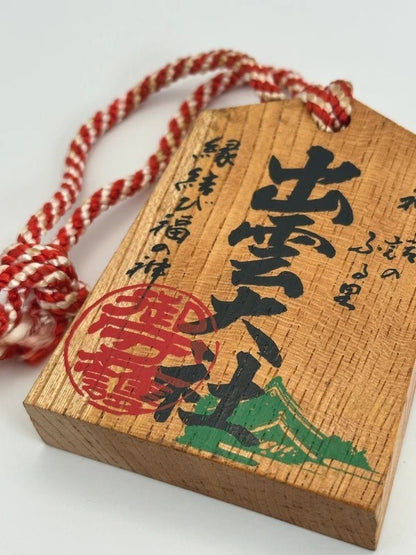 神話の
ふる里
出雲大社
縁結び福の神